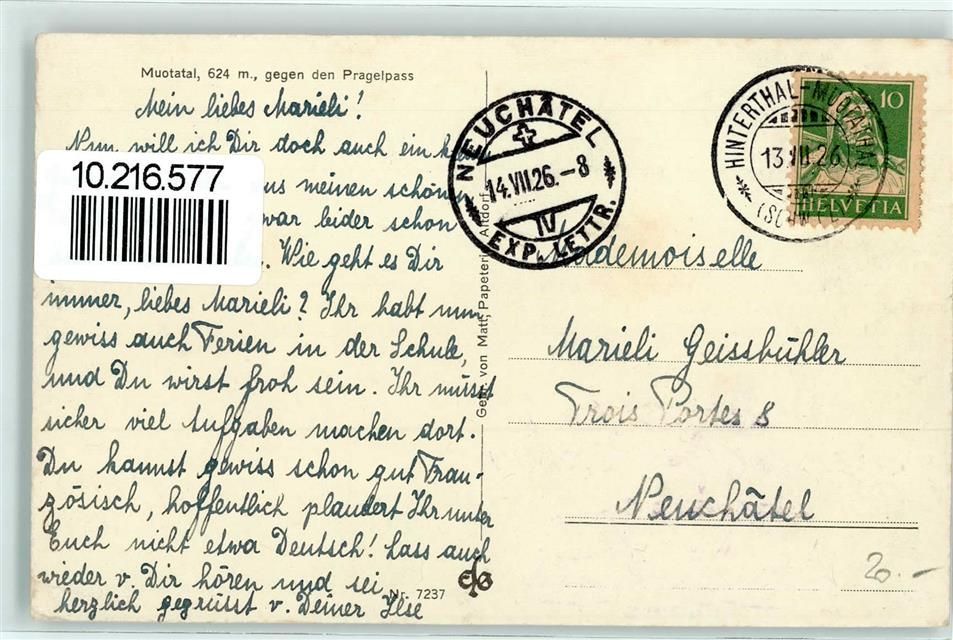 Muotatal, 624 m., gegen den Pragelpass
Mein liebes Marieli!
Nun will ich Dir doch auch ein
10.216.577
aus meinen schönen
zwar leider schon
Wie geht es Dir
immer, liebes Marieli? Ihr habt nun
gewiss auch Ferien in der Schule,
und Du wirst froh sein. Ihr müsst
sicher viel Aufgaben machen dort.
Du kannst gewiss schon gut Fran-
zösisch, hoffentlich plaudert Ihr unter
Euch nicht etwa Deutsch! Lass auch
wieder v. Dir hören und sei
herzlich gegrüsst v. Deiner Ilse
Nr. 7237
Gebr. von Matt, Papeterie, Altdorf
NEUCHÂTEL
14.VII.26.-8
IV
EXP. LETTR.
HINTERTHAL-MUOTATHAL
13.VII.26.
(SCHWYZ)
10
HELVETIA
Mademoiselle
Marieli Geissbühler
Trois Portes 8
Neuchâtel
20.-